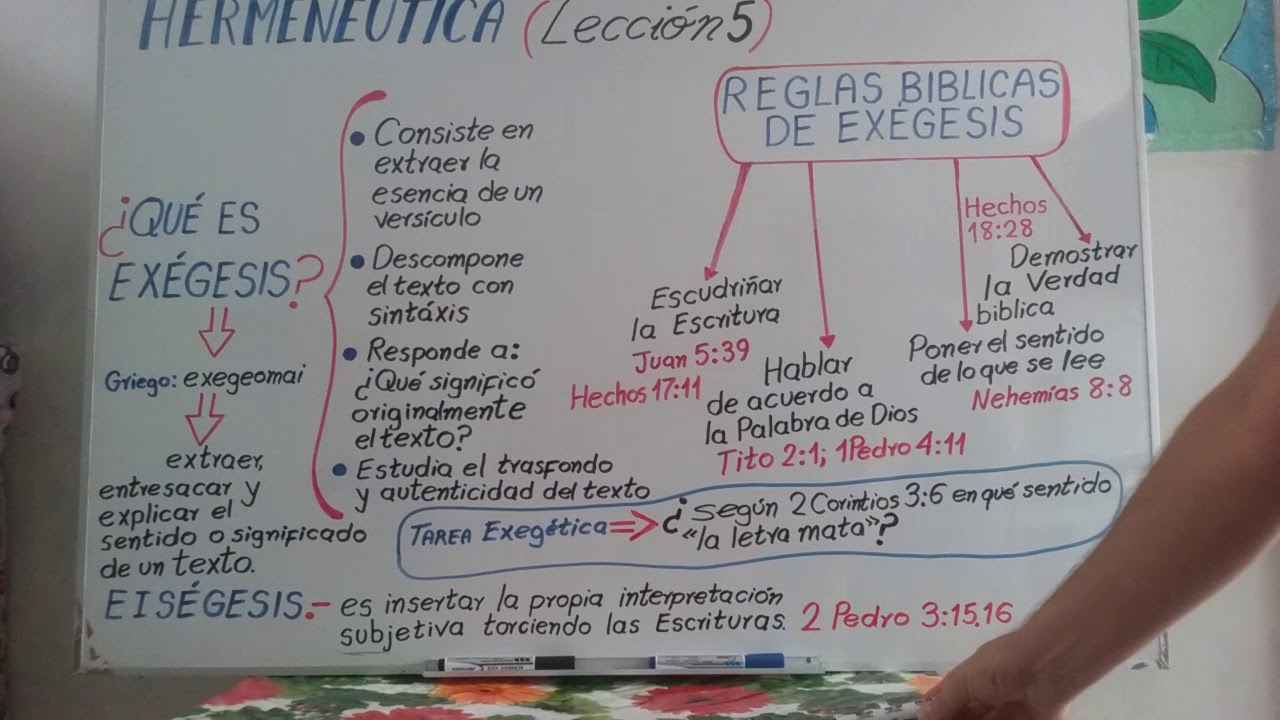 HERMENÉUTICA (Lección 5)
¿QUÉ ES
EXÉGESIS?
Griego: exegeomai
extraer,
entresacar y
explicar el
sentido o significado
de un texto.
• Consiste en
extraer la
esencia de un
versículo
• Descompone
el texto con
sintáxis
• Responde a:
¿Qué significó
originalmente
el texto?
• Estudia el trasfondo
y autenticidad del texto
REGLAS BIBLICAS
DE EXÉGESIS
Escudriñar
la Escritura
Juan 5:39
Hechos 17:11
Hablar
de acuerdo a
la Palabra de Dios
Tito 2:1; 1Pedro 4:11
Poner el sentido
de lo que se lee
Nehemías 8:8
Hechos
18:28
Demostrar
la Verdad
biblica
TAREA Exegética ⇒ ¿según 2 Corintios 3:6 en qué sentido
"la letra mata"?
EISÉGESIS.- es insertar la propia interpretación
subjetiva torciendo las Escrituras. 2 Pedro 3:15,16